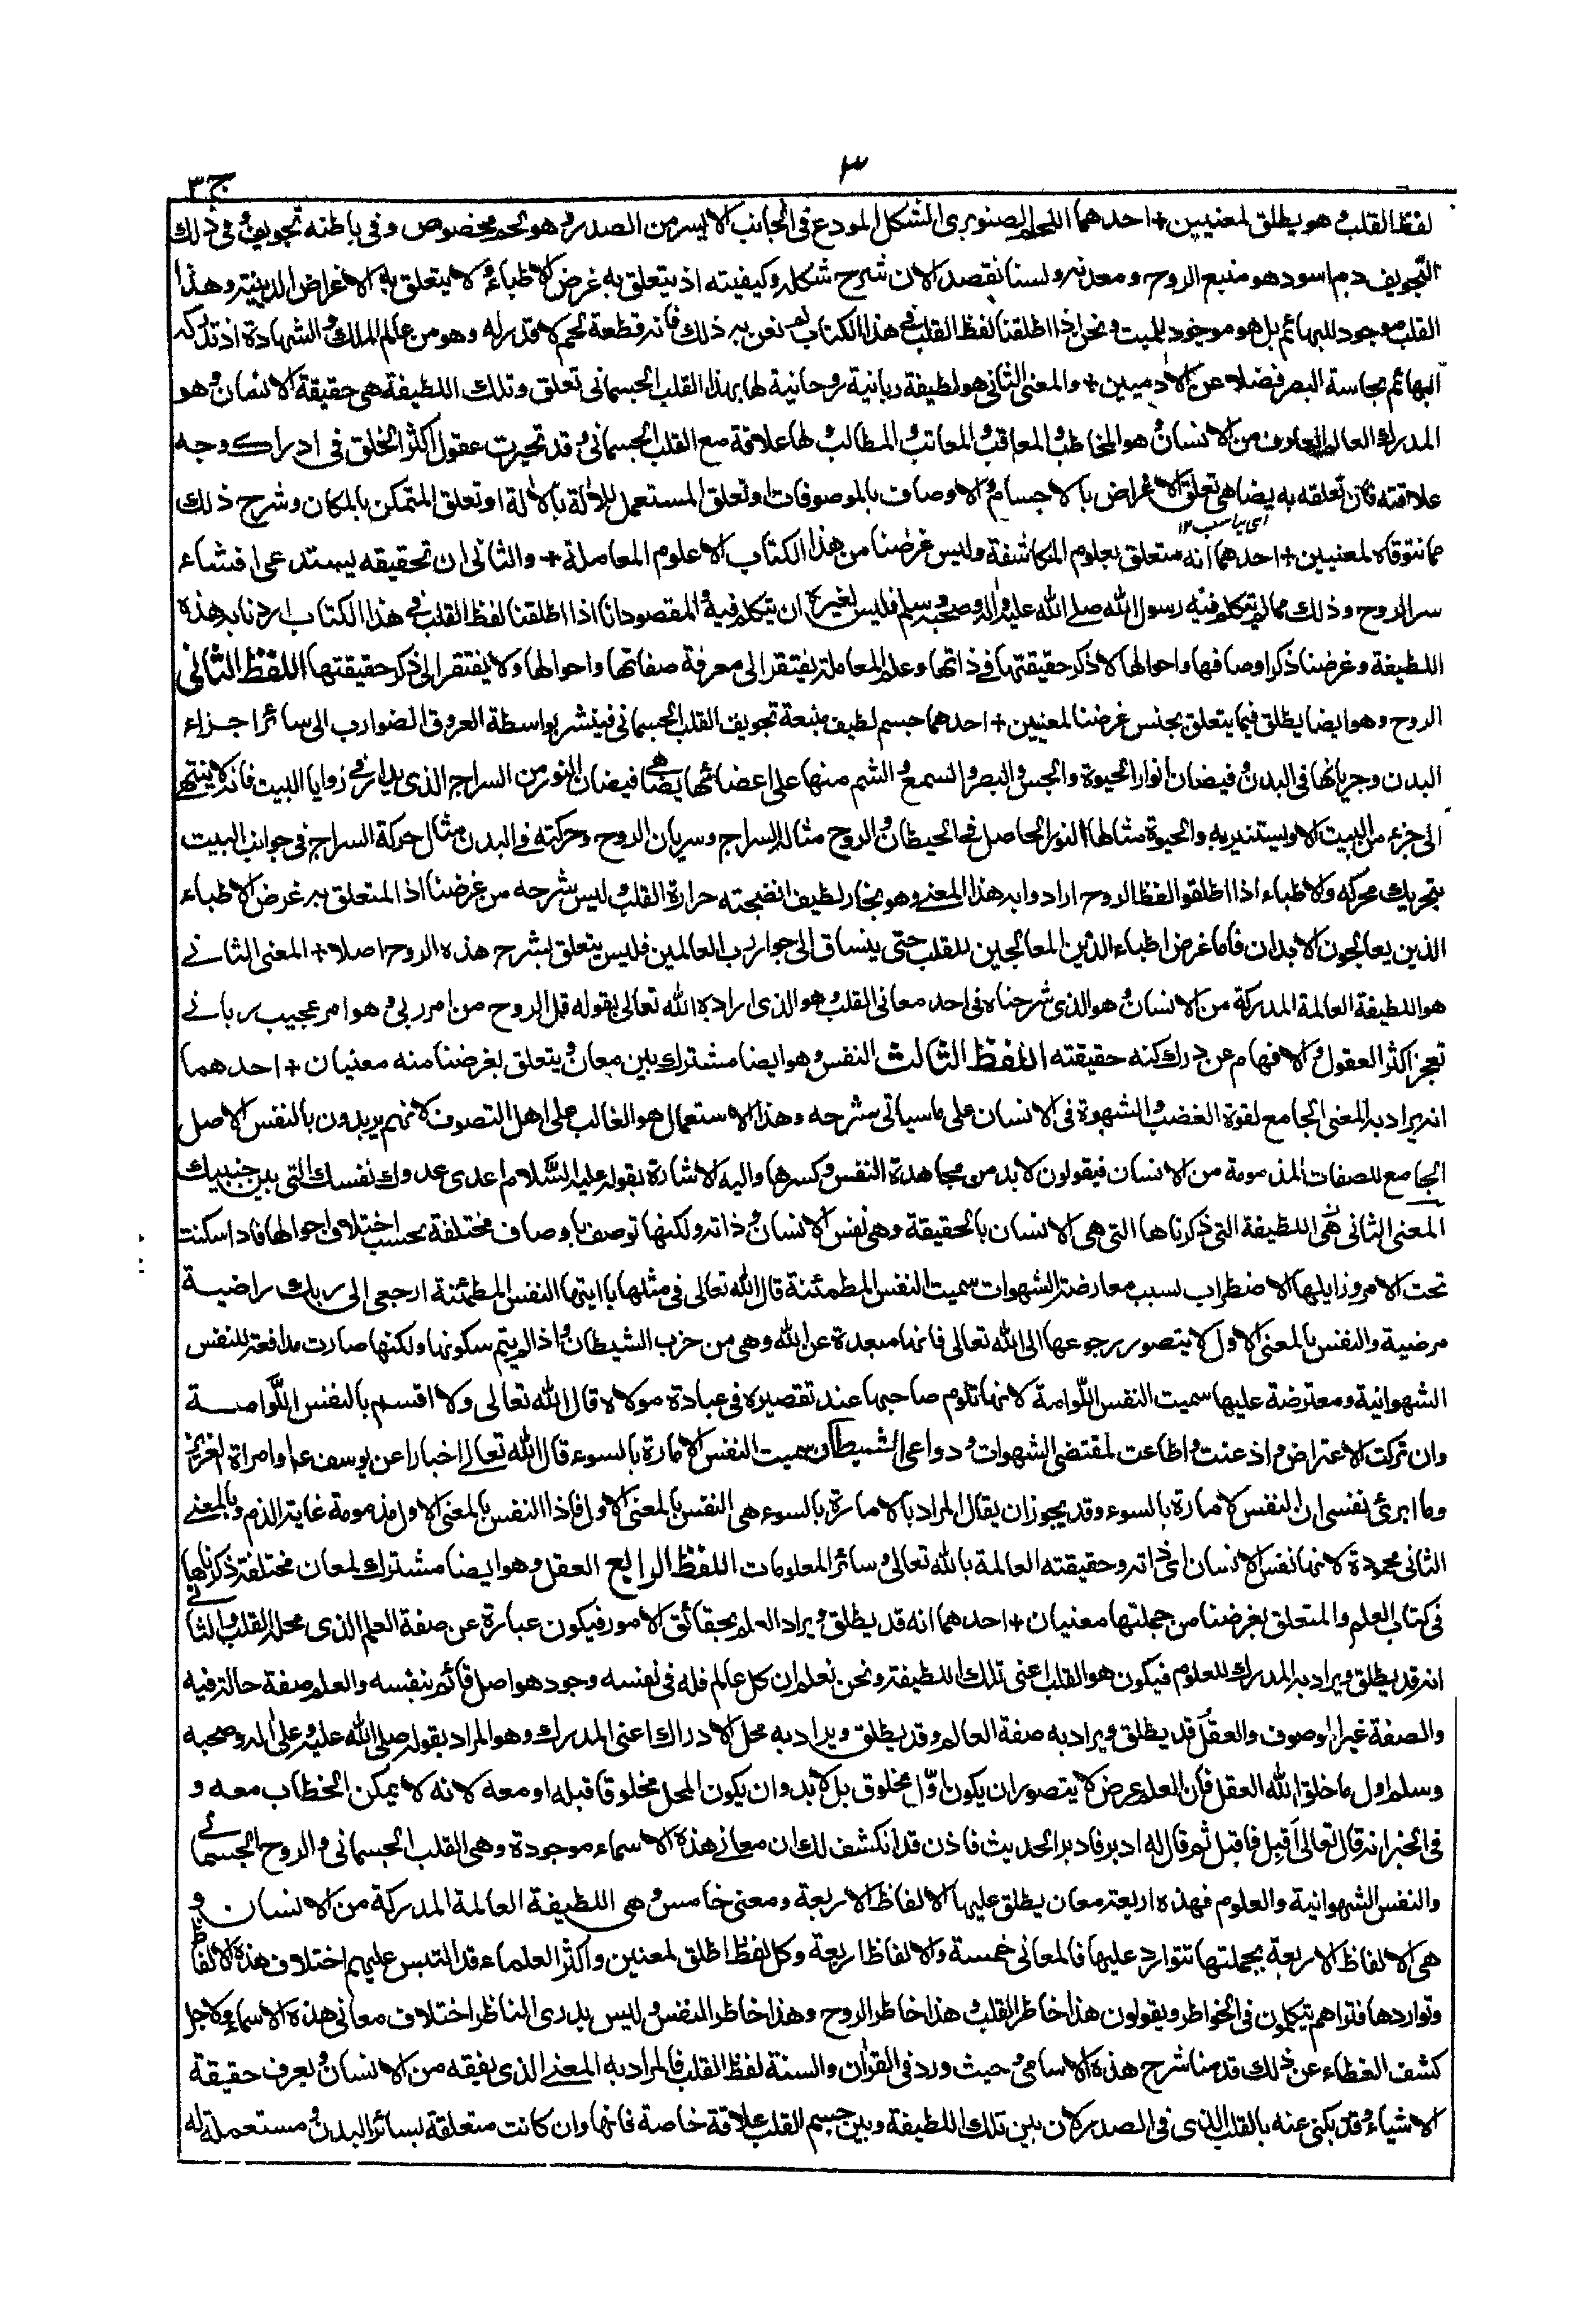 ٣
ج ٣
لفظ القلب وهو يطلق لمعنيين + احدهما اللحم الصنوبرى الشكل المودع فى الجانب الايسر من الصدر وهو لحم مخصوص وفى باطنه تجويف وفى ذلك
التجويف دم اسود هو منبع الروح ومعدنه ولسنا نقصد الان شرح شكله وكيفيته اذ يتعلق به غرض الاطباء ولا يتعلق به الاغراض الدينية وهذا
القلب موجود للبهائم بل هو موجود للميت ونحن اذا اطلقنا لفظ القلب فى هذا الكتاب لم نعن به ذلك فانه قطعة لحم لا قدر له وهو من عالم الملك والشهادة اذ تدركه
البهائم بحاسة البصر فضلا عن الادميين + والمعنى الثانى هو لطيفة ربانية روحانية لها بهذا القلب الجسمانى تعلق وتلك اللطيفة هى حقيقة الانسان وهو
المدرك العالم العارف من الانسان وهو المخاطب والمعاقب والمعاتب والمطالب ولها علاقة مع القلب الجسمانى وقد تحيرت عقول اكثر الخلق فى ادراك وجه
علاقته فان تعلقه به يضاهى تعلق الاعراض بالاجسام والاوصاف بالموصوفات او تعلق المستعمل للالة بالالة او تعلق المتمكن بالمكان وشرح ذلك
مما نتوقاه لمعنيين + احدهما انه متعلق بعلوم المكاشفة وليس غرضنا من هذا الكتاب الا علوم المعاملة + والثانى ان تحقيقه يستدعى افشاء
سر الروح وذلك مما لم يتكلم فيه رسول الله صلى الله عليه واله وصحبه وسلم فليس لغيره ان يتكلم فيه والمقصود انا اذا اطلقنا لفظ القلب فى هذا الكتاب اردنا به هذه
اللطيفة وغرضنا ذكر اوصافها واحوالها لا ذكر حقيقتها فى ذاتها وعلم المعاملة يفتقر الى معرفة صفاتها واحوالها ولا يفتقر الى ذكر حقيقتها اللفظ الثانى
الروح وهو ايضا يطلق فيما يتعلق بجنس غرضنا لمعنيين + احدهما جسم لطيف منبعه تجويف القلب الجسمانى فينشر بواسطة العروق الضوارب الى سائر اجزاء
البدن وجريانها فى البدن وفيضان انوار الحيوة والحس والبصر والسمع والشم منها على اعضائها يضاهى فيضان النور من السراج الذى يدار فى زوايا البيت فانه لا ينتهى
الى جزء من البيت الا ويستنير به والحيوة مثالها النور الحاصل فى الحيطان والروح مثاله السراج وسريان الروح وحركته فى البدن مثال حركة السراج فى جوانب البيت
بتحريك محركه والاطباء اذا اطلقوا لفظ الروح ارادوا به هذا المعنى وهو بخار لطيف انضجته حرارة القلب وليس شرحه من غرضنا اذ المتعلق به غرض الاطباء
الذين يعالجون الابدان فاما غرض اطباء الدين المعالجين للقلب حتى ينساق الى جوار رب العالمين فليس يتعلق بشرح هذه الروح اصلا + المعنى الثانى
هو اللطيفة العالمة المدركة من الانسان وهو الذى شرحناه فى احد معانى القلب وهو الذى اراده الله تعالى بقوله قل الروح من امر ربى وهو امر عجيب ربانى
تعجز اكثر العقول والافهام عن درك كنه حقيقته اللفظ الثالث النفس وهو ايضا مشترك بين معان ويتعلق بغرضنا منه معنيان + احدهما
انه يراد به المعنى الجامع لقوة الغضب والشهوة فى الانسان على ما سياتى شرحه وهذا الاستعمال هو الغالب على اهل التصوف لانهم يريدون بالنفس الاصل
الجامع للصفات المذمومة من الانسان فيقولون لا بد من مجاهدة النفس وكسرها واليه الاشارة بقوله عليه السلام اعدى عدوك نفسك التى بين جنبيك
المعنى الثانى هى اللطيفة التى ذكرناها التى هى الانسان بالحقيقة وهى نفس الانسان وذاته ولكنها توصف باوصاف مختلفة بحسب اختلاف احوالها فاذا سكنت
تحت الامر وزايلها الاضطراب بسبب معارضة الشهوات سميت النفس المطمئنة قال الله تعالى فى مثلها يا ايتها النفس المطمئنة ارجعى الى ربك راضية
مرضية والنفس بالمعنى الاول لا يتصور رجوعها الى الله تعالى فانها مبعدة عن الله وهى من حزب الشيطان واذا لم يتم سكونها ولكنها صارت مدافعة للنفس
الشهوانية ومعترضة عليها سميت النفس اللوامة لانها تلوم صاحبها عند تقصيره فى عبادة مولاه قال الله تعالى ولا اقسم بالنفس اللوامة
وان تركت الاعتراض واذعنت واطاعت لمقتضى الشهوات ودواعى الشيطان سميت النفس الامارة بالسوء قال الله تعالى اخبارا عن يوسف عم او امراة العزيز
وما ابرئ نفسى ان النفس لامارة بالسوء وقد يجوز ان يقال المراد بالامارة بالسوء هى النفس بالمعنى الاول فاذا النفس بالمعنى الاول مذمومة غاية الذم وبالمعنى
الثانى محمودة لانها نفس الانسان اى ذاته وحقيقته العالمة بالله تعالى وسائر المعلومات اللفظ الرابع العقل وهو ايضا مشترك لمعان مختلفة ذكرناها
فى كتاب العلم والمتعلق بغرضنا من جملتها معنيان + احدهما انه قد يطلق ويراد به العلم بحقائق الامور فيكون عبارة عن صفة العلم الذى محله القلب والثانى
انه قد يطلق ويراد به المدرك للعلوم فيكون هو القلب اعنى تلك اللطيفة ونحن نعلم ان كل عالم فله فى نفسه وجود هو اصل قائم بنفسه والعلم صفة حالة فيه
والصفة غير الموصوف والعقل قد يطلق ويراد به صفة العالم وقد يطلق ويراد به محل الادراك اعنى المدرك وهو المراد بقوله صلى الله عليه وعلى اله وصحبه
وسلم اول ما خلق الله العقل فان العلم عرض لا يتصور ان يكون اول مخلوق بل لا بد وان يكون المحل مخلوقا قبله او معه لانه لا يمكن الخطاب معه و
فى الخبر انه قال تعالى اقبل فاقبل ثم قال له ادبر فادبر الحديث فاذن قد انكشف لك ان معانى هذه الاسماء موجودة وهى القلب الجسمانى والروح الجسمانى
والنفس الشهوانية والعلوم فهذه اربعة معان يطلق عليها الالفاظ الاربعة ومعنى خامس وهى اللطيفة العالمة المدركة من الانسان و
هى الالفاظ الاربعة بجملتها تتوارد عليها فالمعانى خمسة والالفاظ اربعة وكل لفظ اطلق لمعنيين واكثر العلماء قد التبس عليهم اختلاف هذه الالفاظ
وتواردها فتراهم يتكلمون فى الخواطر ويقولون هذا خاطر القلب وهذا خاطر الروح وهذا خاطر النفس وليس يدرى الناظر اختلاف معانى هذه الاسماء ولاجل
كشف الغطاء عن ذلك قدمنا شرح هذه الاسامى وحيث ورد فى القران والسنة لفظ القلب فالمراد به المعنى الذى يفقه من الانسان ويعرف حقيقة
الاشياء وقد يكنى عنه بالقلب الذى فى الصدر لان بين تلك اللطيفة وبين جسم القلب علاقة خاصة فانها وان كانت متعلقة بسائر البدن ومستعملة له